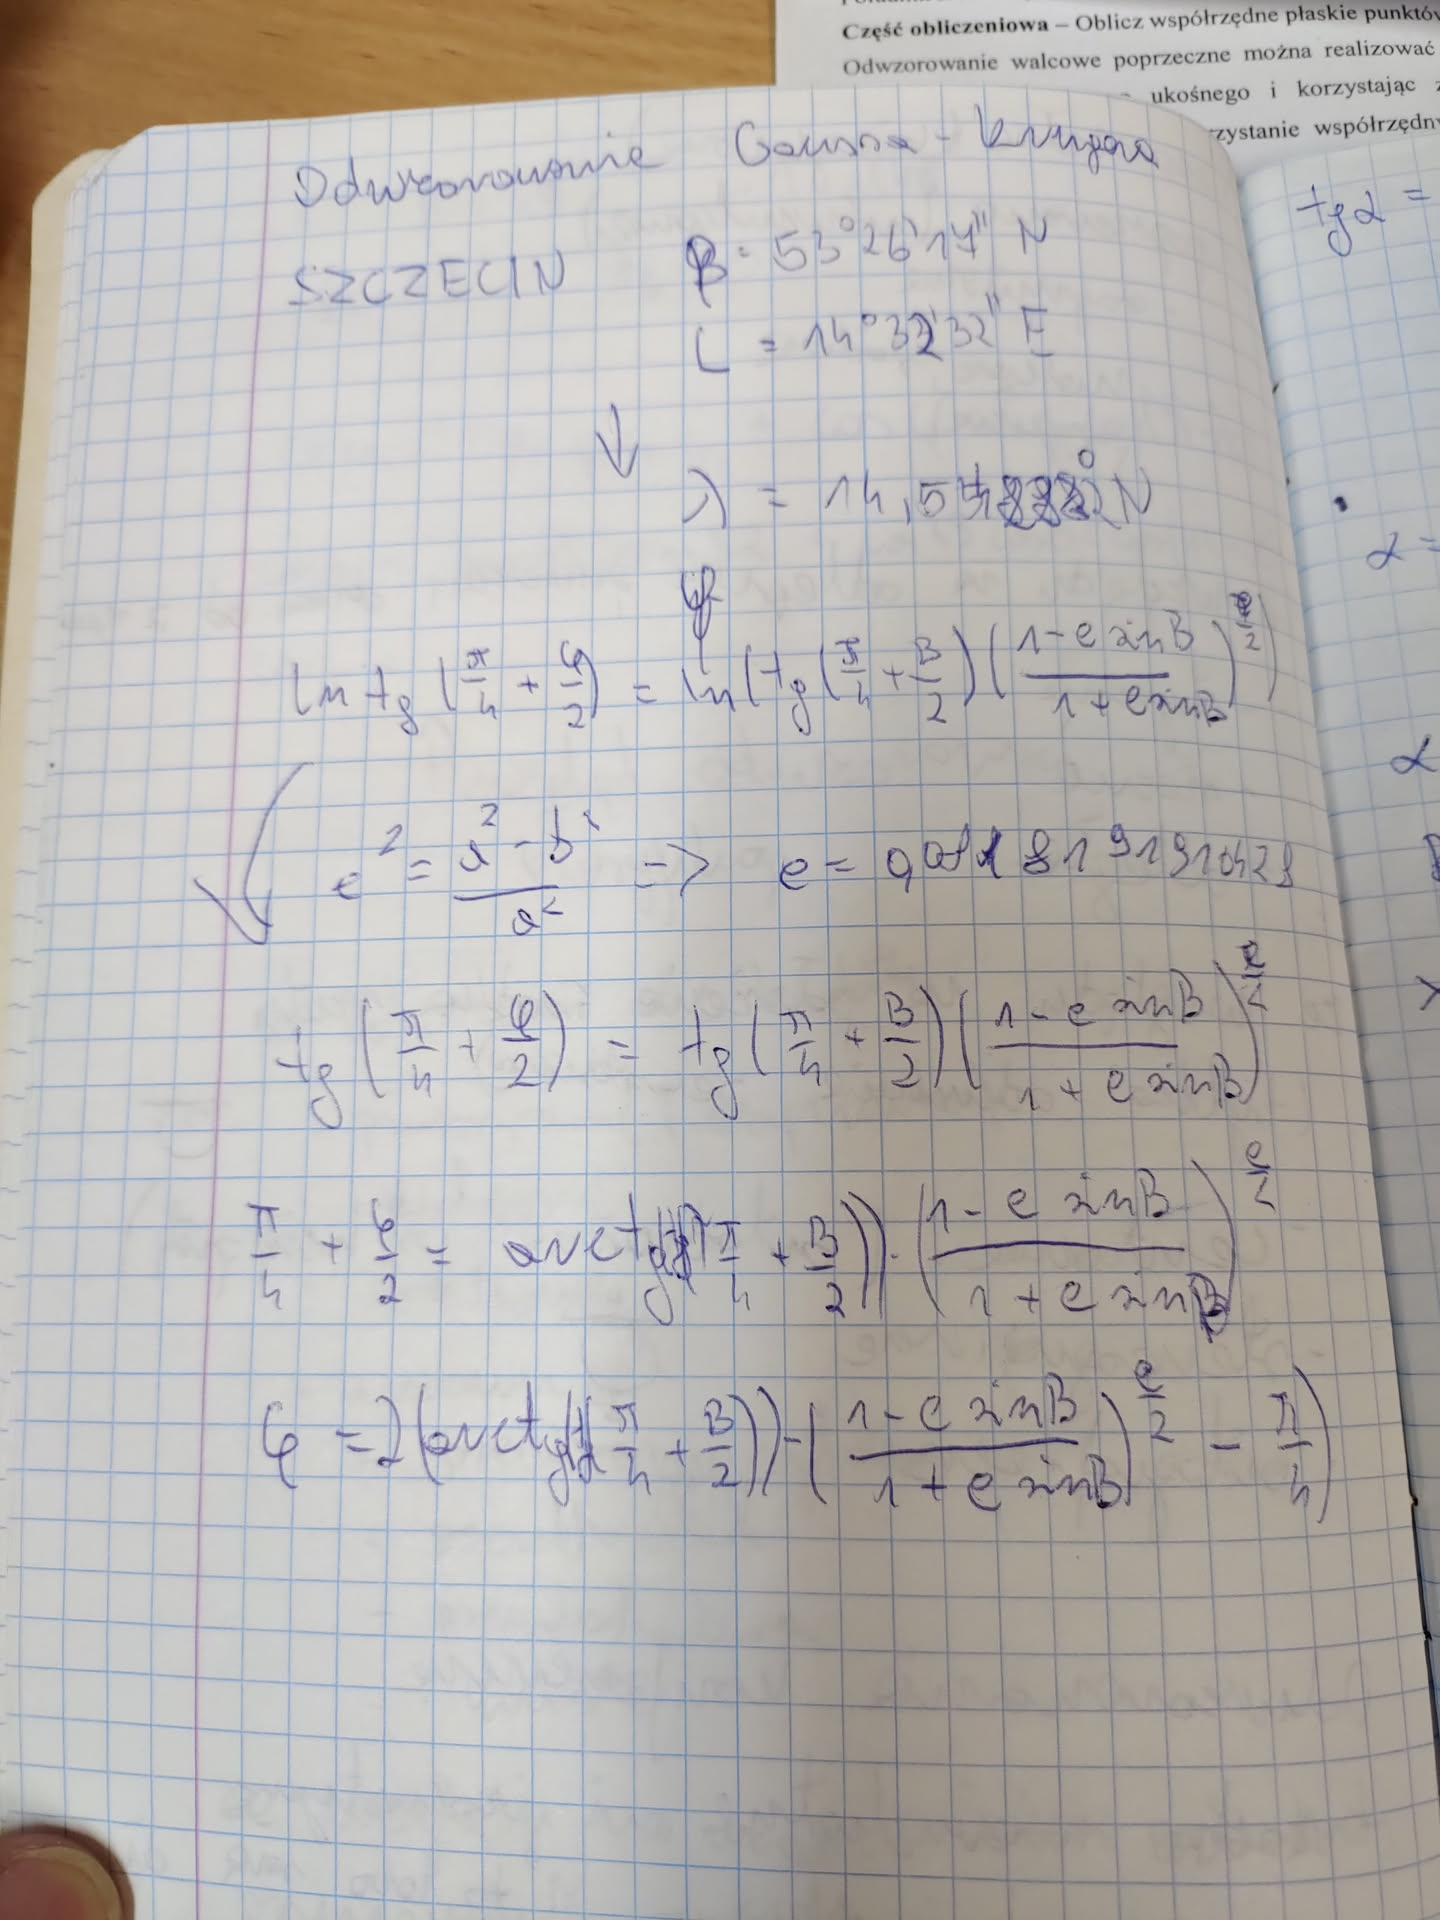 Część obliczeniowa – Oblicz współrzędne płaskie punktów
Odwzorowanie walcowe poprzeczne można realizować
ukośnego i korzystając z
zystanie współrzędny
Odwzorowanie Gaussa - Krugera
SZCZECIN B = 53°26'17" N
L = 14°32'32" E
↓
λ = 14,54222° N
ln tg (π/4 + φ/2) = ln (tg (π/4 + B/2) ((1 - e sinB)/(1 + e sinB))^(e/2))
e² = (a² - b²)/a² => e = 0,0818191910428
tg (π/4 + φ/2) = tg (π/4 + B/2) ((1 - e sinB)/(1 + e sinB))^(e/2)
π/4 + φ/2 = arctg(tg(π/4 + B/2)) · ((1 - e sinB)/(1 + e sinB))^(e/2)
φ = 2(arctg(tg(π/4 + B/2)) · ((1 - e sinB)/(1 + e sinB))^(e/2) - π/4)
tg α =
α =
α